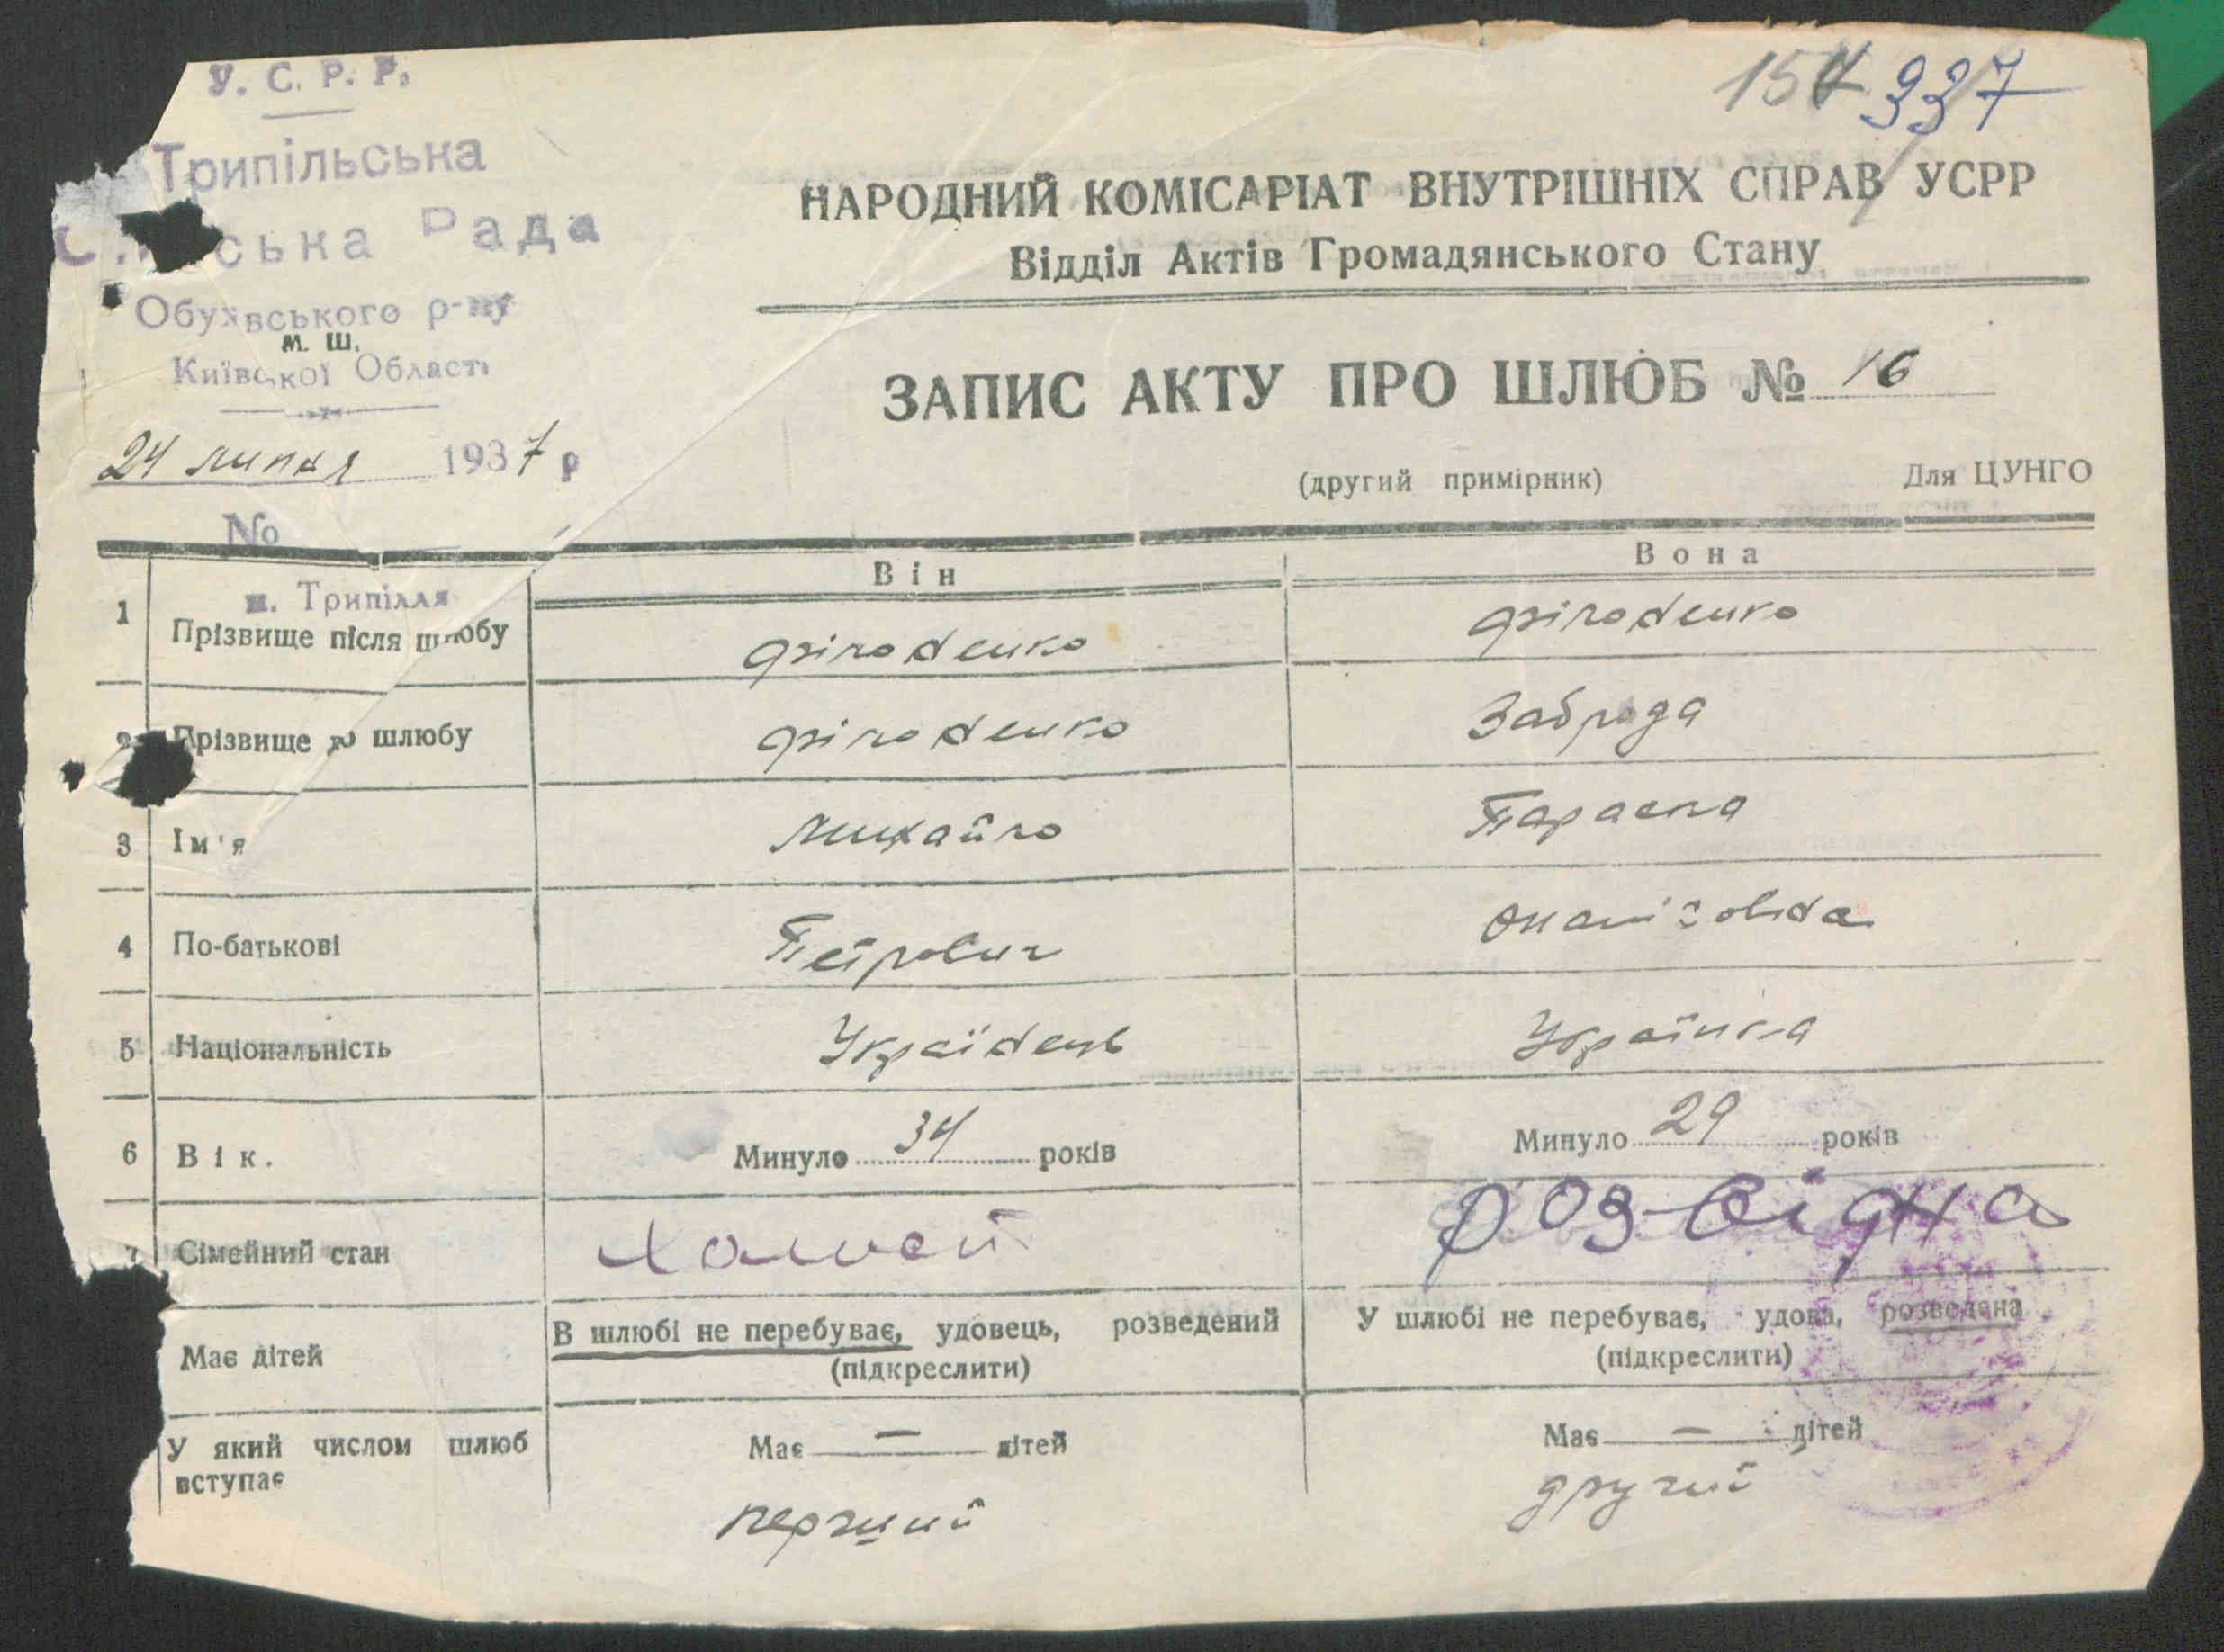 У. С. Р. Р.
Трипільська
ська Рада
Обухівського р-ну
м. Ш.
Київської Області
24 липня 1937 р
№
337
НАРОДНИЙ КОМІСАРІАТ ВНУТРІШНІХ СПРАВ УСРР
Відділ Актів Громадянського Стану
ЗАПИС АКТУ ПРО ШЛЮБ № 16
(другий примірник) Для ЦУНГО
Він Вона
с. Трипілля
1 Прізвище після шлюбу Філоненко Філоненко
2 Прізвище до шлюбу Філоненко Заброда
3 Ім'я Михайло Параска
4 По-батькові Петрович
5 Національність Українець Українка
6 Вік. Минуло 34 років Минуло 29 років
7 Сімейний стан розвідна
В шлюбі не перебуває, удовець, розведений У шлюбі не перебуває, удова, розведена
(підкреслити) (підкреслити)
Має дітей Має — дітей Має — дітей
У який числом шлюб
вступає
перший другий